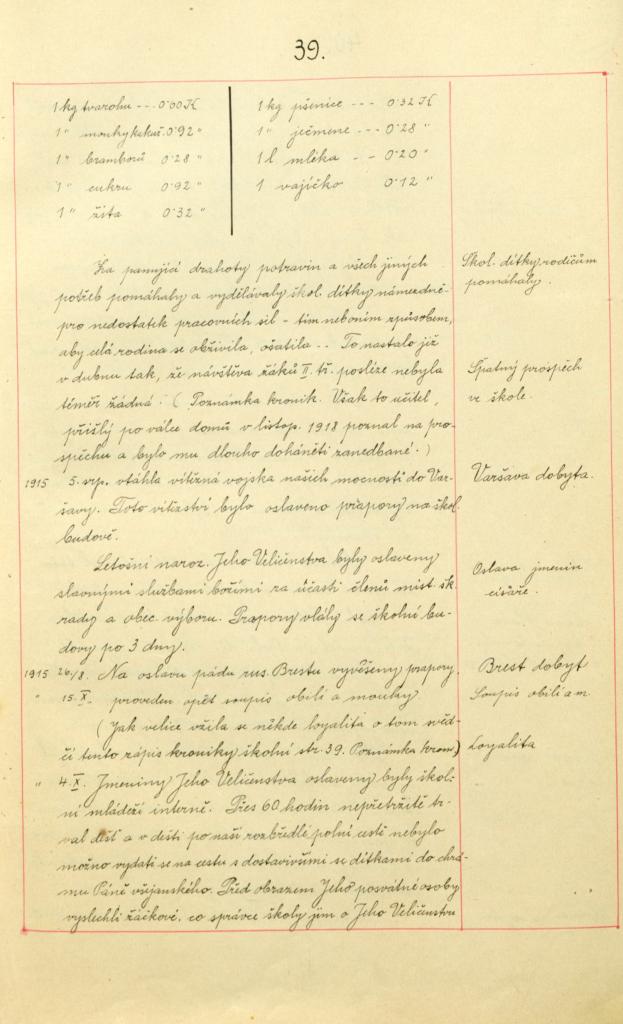 39.
1 kg tvarohu --- 0·00 K
1 " mouky kukuř. 0·92 "
1 " bramborů 0·28 "
1 " cukru 0·92 "
1 " žita 0·32 "
1 kg pšenice --- 0·32 K
1 " ječmene --- 0·28 "
1 l mléka -- 0·20 "
1 vajíčko 0·12 "
Za panující drahoty potravin a všech jiných
potřeb pomáhaly a vydělávaly škol. dítky námezdně
pro nedostatek pracovních sil - tím neb oním způsobem,
aby celá rodina se obživila, ošatila -. To nastalo již
v dubnu tak, že návštěva žáků II. tř. posléze nebyla
téměř žádná. (Poznámka kronik. Však to učitel,
přišlý po válce domů v listop. 1918 poznal na pro-
spěchu a bylo mu dlouho doháněti zanedbané.)
Škol. dítky rodičům
pomáhaly.
Špatný prospěch
ve škole.
1915 5. srp. vtáhla vítězná vojska našich mocností do Var-
šavy. Toto vítězství bylo oslaveno prapory na škol.
budově.
Varšava dobyta.
Letošní naroz. Jeho Veličenstva byly oslaveny
slavnými službami božími za účasti členů míst. šk.
rady a obec. výboru. Prapory vlály se školní bu-
dovy po 3 dny.
Oslava jmenin
císaře.
1915 26/8. Na oslavu pádu rus. Brestu vyvěšeny prapory.
" 15. X. proveden opět soupis obilí a mouky
(Jak velice vžila se někde loyalita o tom svěd-
čí tento zápis kroniky školní str. 39. Poznámka kron.)
Brest dobyt
Soupis obilí a m.
Loyalita
" 4. X. Jmeniny Jeho Veličenstva oslaveny byly škol-
ní mládeží interně. Přes 60 hodin nepřetržitě tr-
val déšť a v dešti po naší rozbředlé polní cestě nebylo
možno vydati se na cestu s dostavivšími se dítkami do chrá-
mu Páně všejanského. Před obrazem Jeho posvátné osoby
vyslechli žáčkové, co správce školy jim o Jeho Veličenstvu